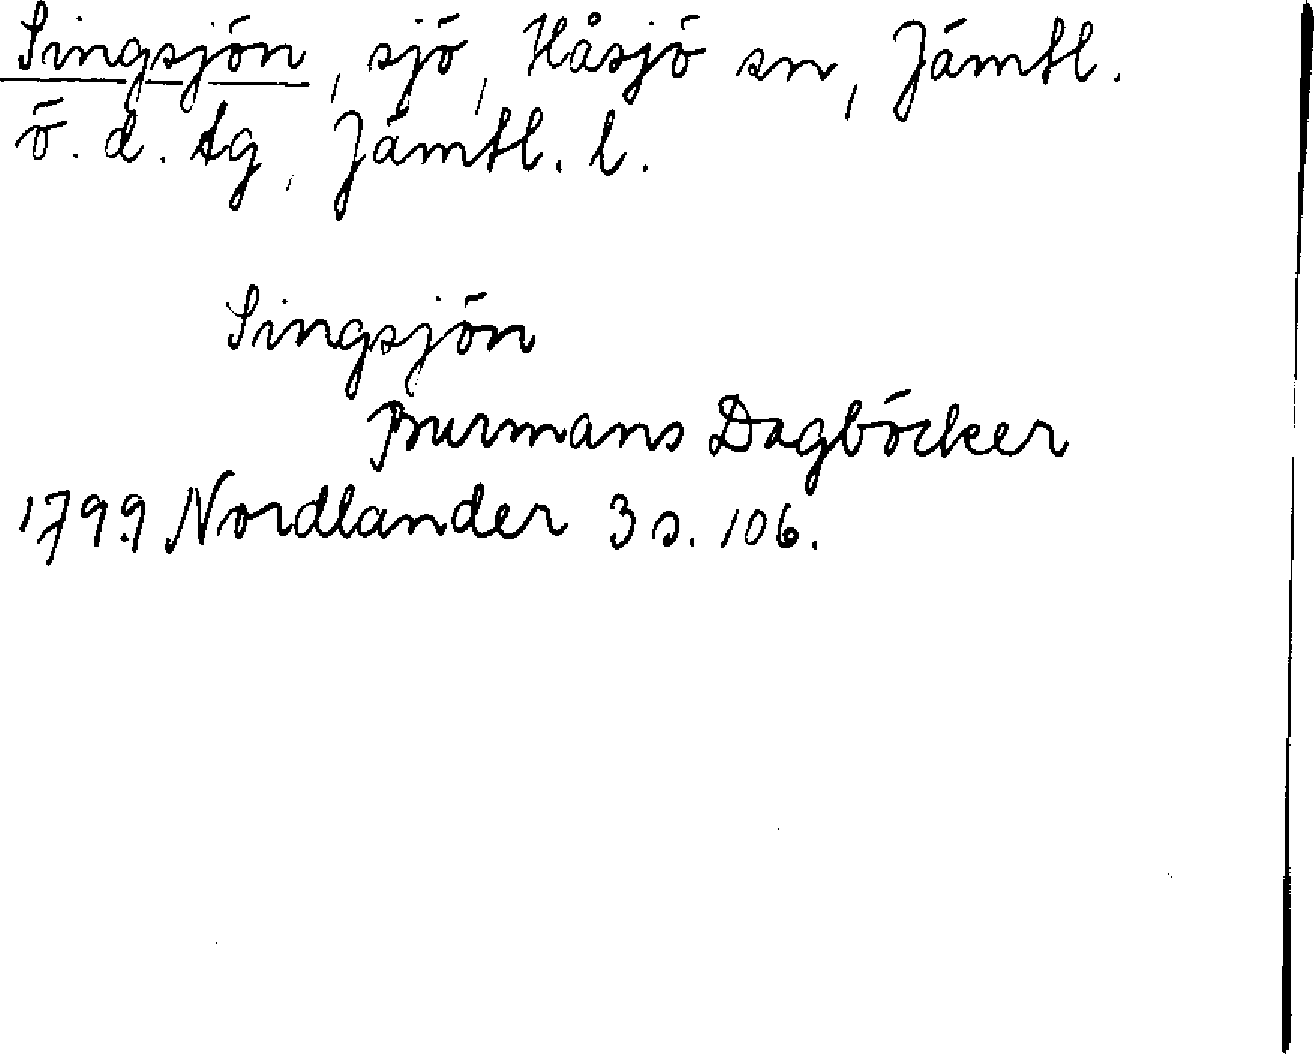 Singsjön, sjö, Håsjö sn, Jämtl.
ö. d. tg, Jämtl. l.
Singsjön
Burmans Dagböcker
1799. Nordlander 3 s. 106.